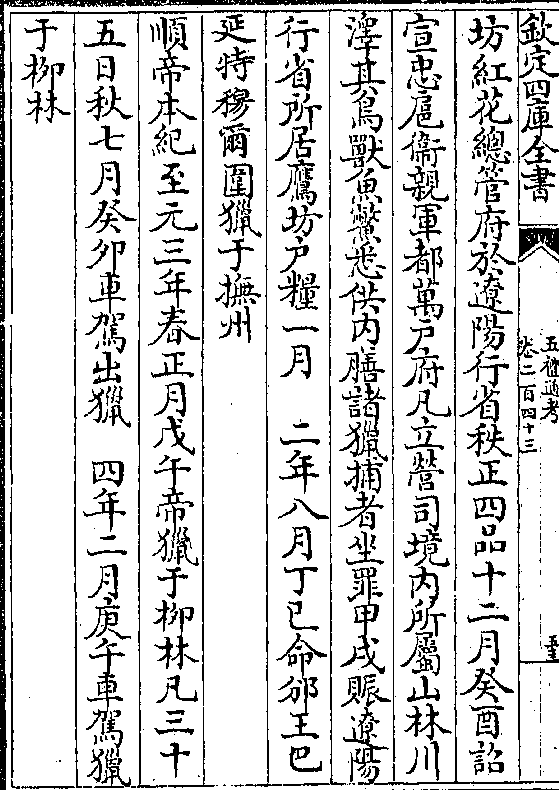 欽定四庫全書
五禮通考
卷二百四十三
坊紅花總管府於遼陽行省秩正四品十二月癸酉詔
宣忠扈衛親軍都萬戶府凡立營司境内所屬山林川
澤其鳥獸魚鱉悉供内膳諸獵捕者坐罪甲戌賑遼陽
行省所居鷹坊戶糧一月　二年八月丁巳命邠王巴
延特穆爾圍獵于撫州
順帝本紀至元三年春正月戊午帝獵于柳林凡三十
五日秋七月癸卯車駕出獵　四年二月庚午車駕獵
于柳林